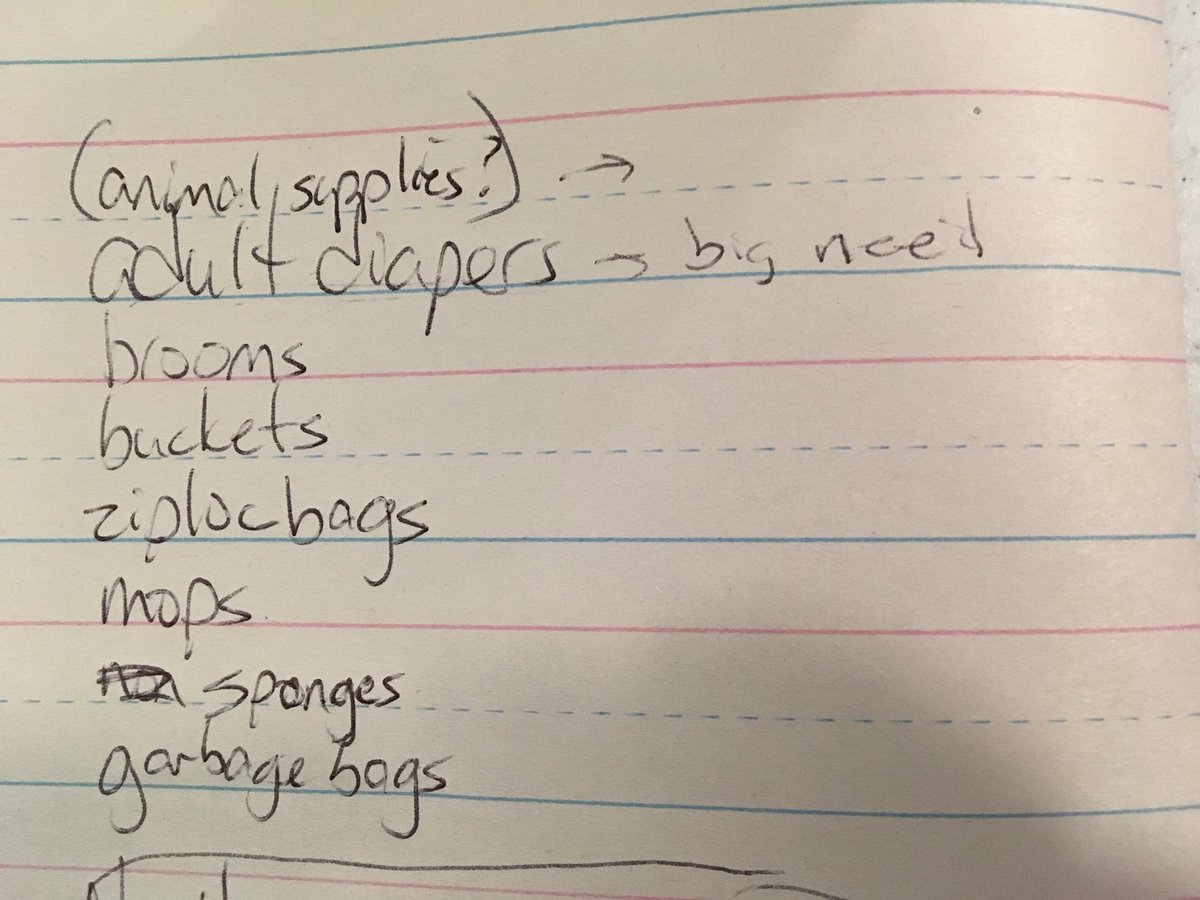 (animal supplies?) →
adult diapers → big need
brooms
buckets
ziploc bags
mops
sponges
garbage bags